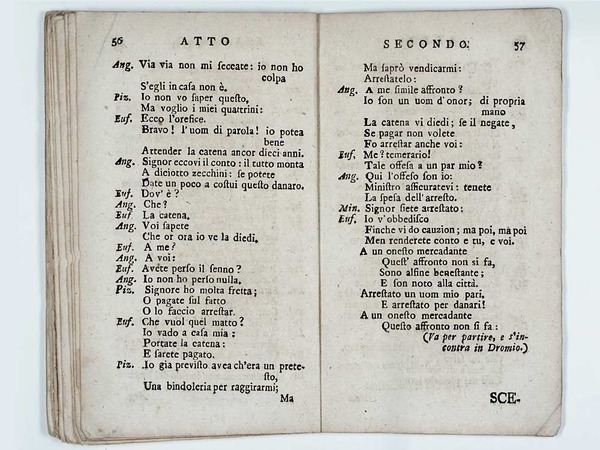 56 ATTO
Ang. Via via non mi seccate: io non ho
colpa
S'egli in casa non è.
Piz. Io non vo saper questo,
Ma voglio i miei quatrini:
Euf. Ecco l'orefice.
Bravo! l'uom di parola! io potea
bene
Attender la catena ancor dieci anni.
Ang. Signor eccovi il conto: il tutto monta
A diciotto zecchini: se potete
Date un poco a costui questo danaro.
Euf. Dov'è?
Ang. Che?
Euf. La catena.
Ang. Voi sapete
Che or ora io ve la diedi.
Euf. A me?
Ang. A voi:
Euf. Avete perso il senno?
Ang. Io non ho perso nulla.
Piz. Signore ho molta fretta;
O pagate sul fatto
O lo faccio arrestar.
Euf. Che vuol quel matto?
Io vado a casa mia:
Portate la catena:
E sarete pagato.
Piz. Io già previsto avea ch'era un prete-
sto,
Una bindoleria per raggirarmi;
Ma
SECONDO. 57
Ma saprò vendicarmi:
Arrestatelo:
Ang. A me simile affronto?
Io son un uom d'onor; di propria
mano
La catena vi diedi; se il negate,
Se pagar non volete
Fo arrestar anche voi:
Euf. Me? temerario!
Tale offesa a un par mio?
Ang. Qui l'offeso son io:
Ministro assicuratevi: tenete
La spesa dell'arresto.
Min. Signor siete arrestato:
Euf. Io v'obbedisco
Finche vi do cauzion; ma poi, ma poi
Men renderete conto e tu, e voi.
A un onesto mercadante
Quest' affronto non si fa,
Sono alfine benestante;
E son noto alla città.
Arrestato un uom mio pari,
E arrestato per danari!
A un onesto mercadante
Questo affronto non si fa:
(Va per partire, e s'in-
contra in Dromio.)
SCE-